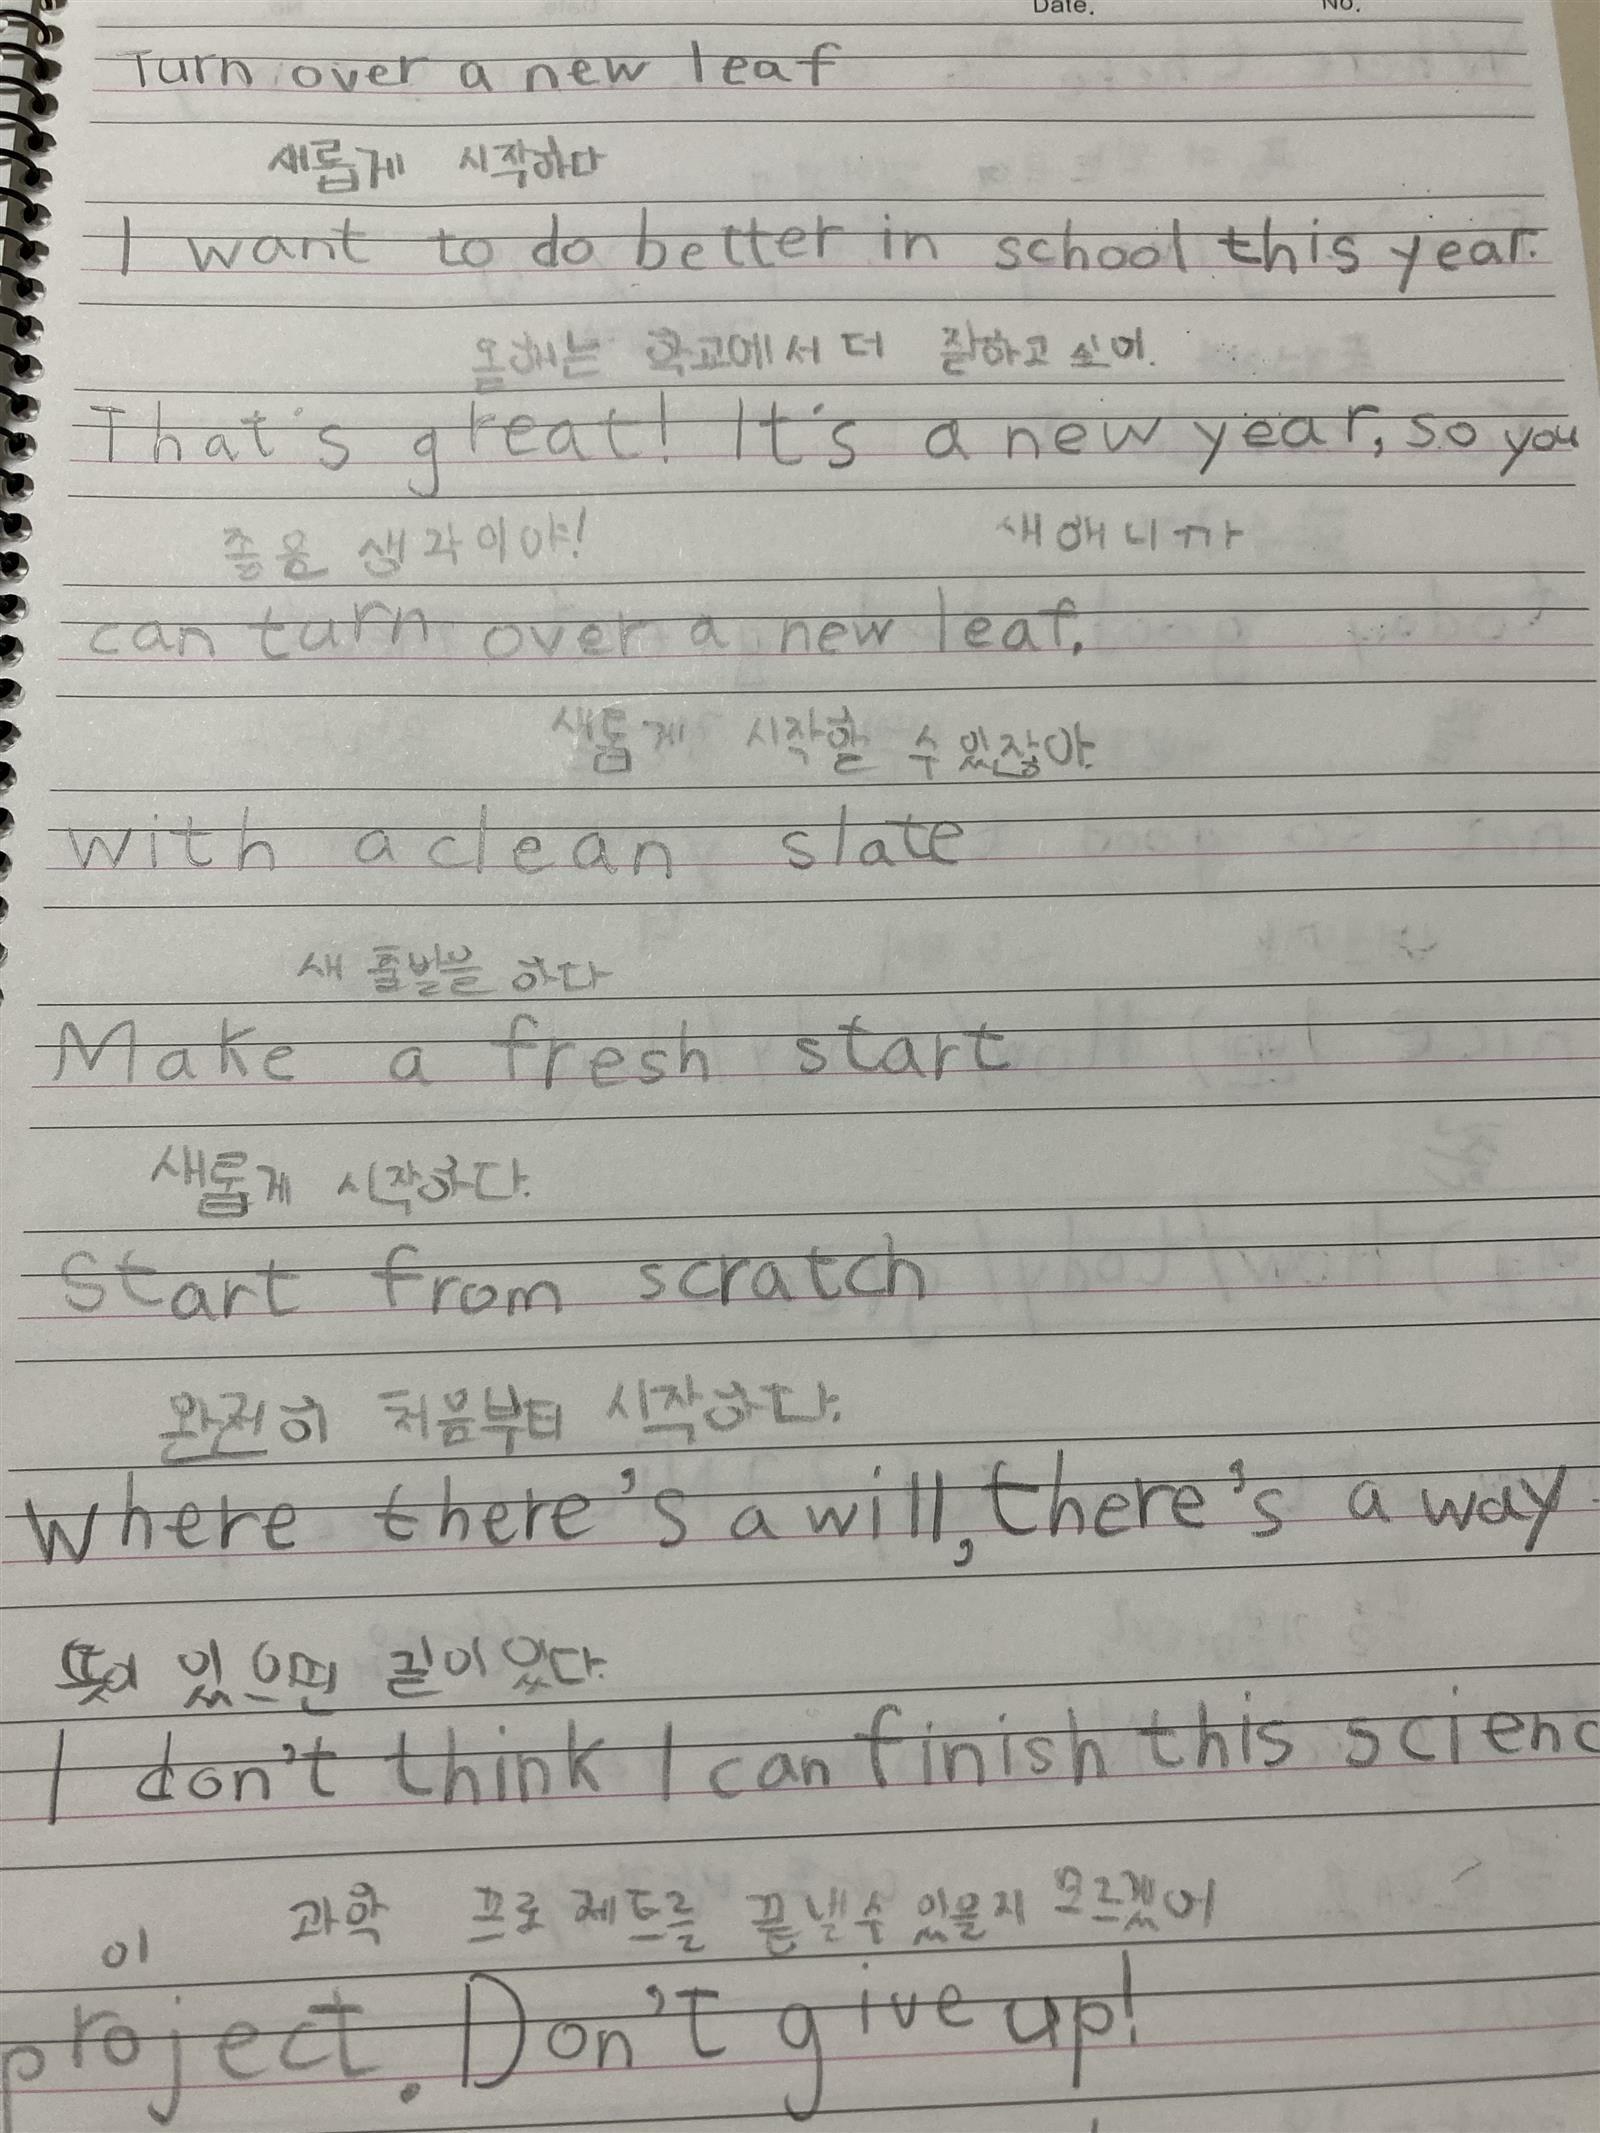 Date. No.
Turn over a new leaf
새롭게 시작하다
I want to do better in school this year.
올해는 학교에서 더 잘하고 싶어.
That's great! It's a new year, so you
좋은 생각이야! 새해니까
can turn over a new leaf.
새롭게 시작할 수 있잖아.
with a clean slate
새 출발을 하다
Make a fresh start
새롭게 시작하다.
Start from scratch
완전히 처음부터 시작하다.
Where there's a will, there's a way.
뜻이 있으면 길이 있다.
I don't think I can finish this scienc
이 과학 프로젝트를 끝낼 수 있을지 모르겠어
project. Don't give up!